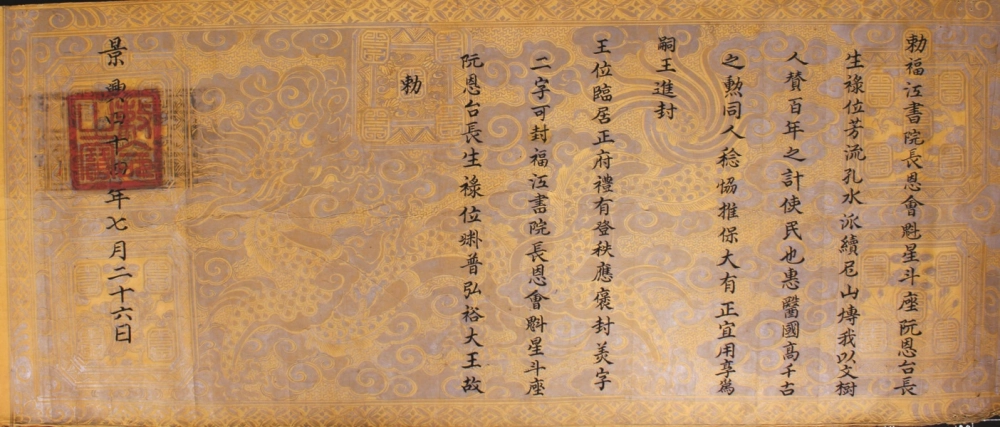 勅福江書院長恩會魁星斗座阮恩台長
生祿位芳流孔水派續尼山塼我以文樹
人賛百年之計使民也惠醫國高千古
之勲同人稔恊推保大有正宜用享為
嗣王進封
王位臨居正府禮有登秩應褒封美字
二字可封福江書院長恩會魁星斗座
阮恩台長生祿位淋普弘裕大王故
勅
景興四十四年七月二十六日